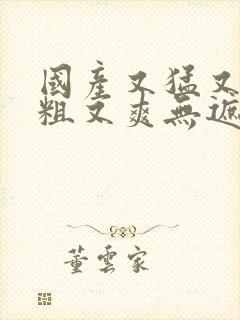 國產又猛又
粗又爽無遮
董雲家